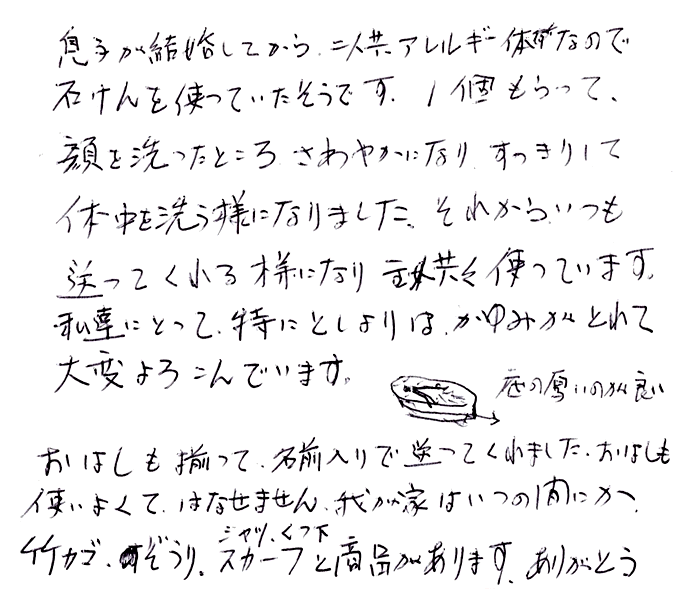 息子が結婚してから、二人共アレルギー体質なので
石けんを使っていたそうです。1個もらって、
顔を洗ったところ さわやかになり すっきりして
体中を洗う様になりました。それから、いつも
送ってくれる様になり 共々使っています。
私達にとって、特にとしよりは、かゆみがとれて
大変よろこんでいます。
底の厚いのが良い
おはしも揃って、名前入りで送ってくれました。おはしも
使いよくて、はなせません。我が家はいつの間にか、
シャツ、くつ下
竹カゴ、ぞうり、スカーフと商品があります。ありがとう